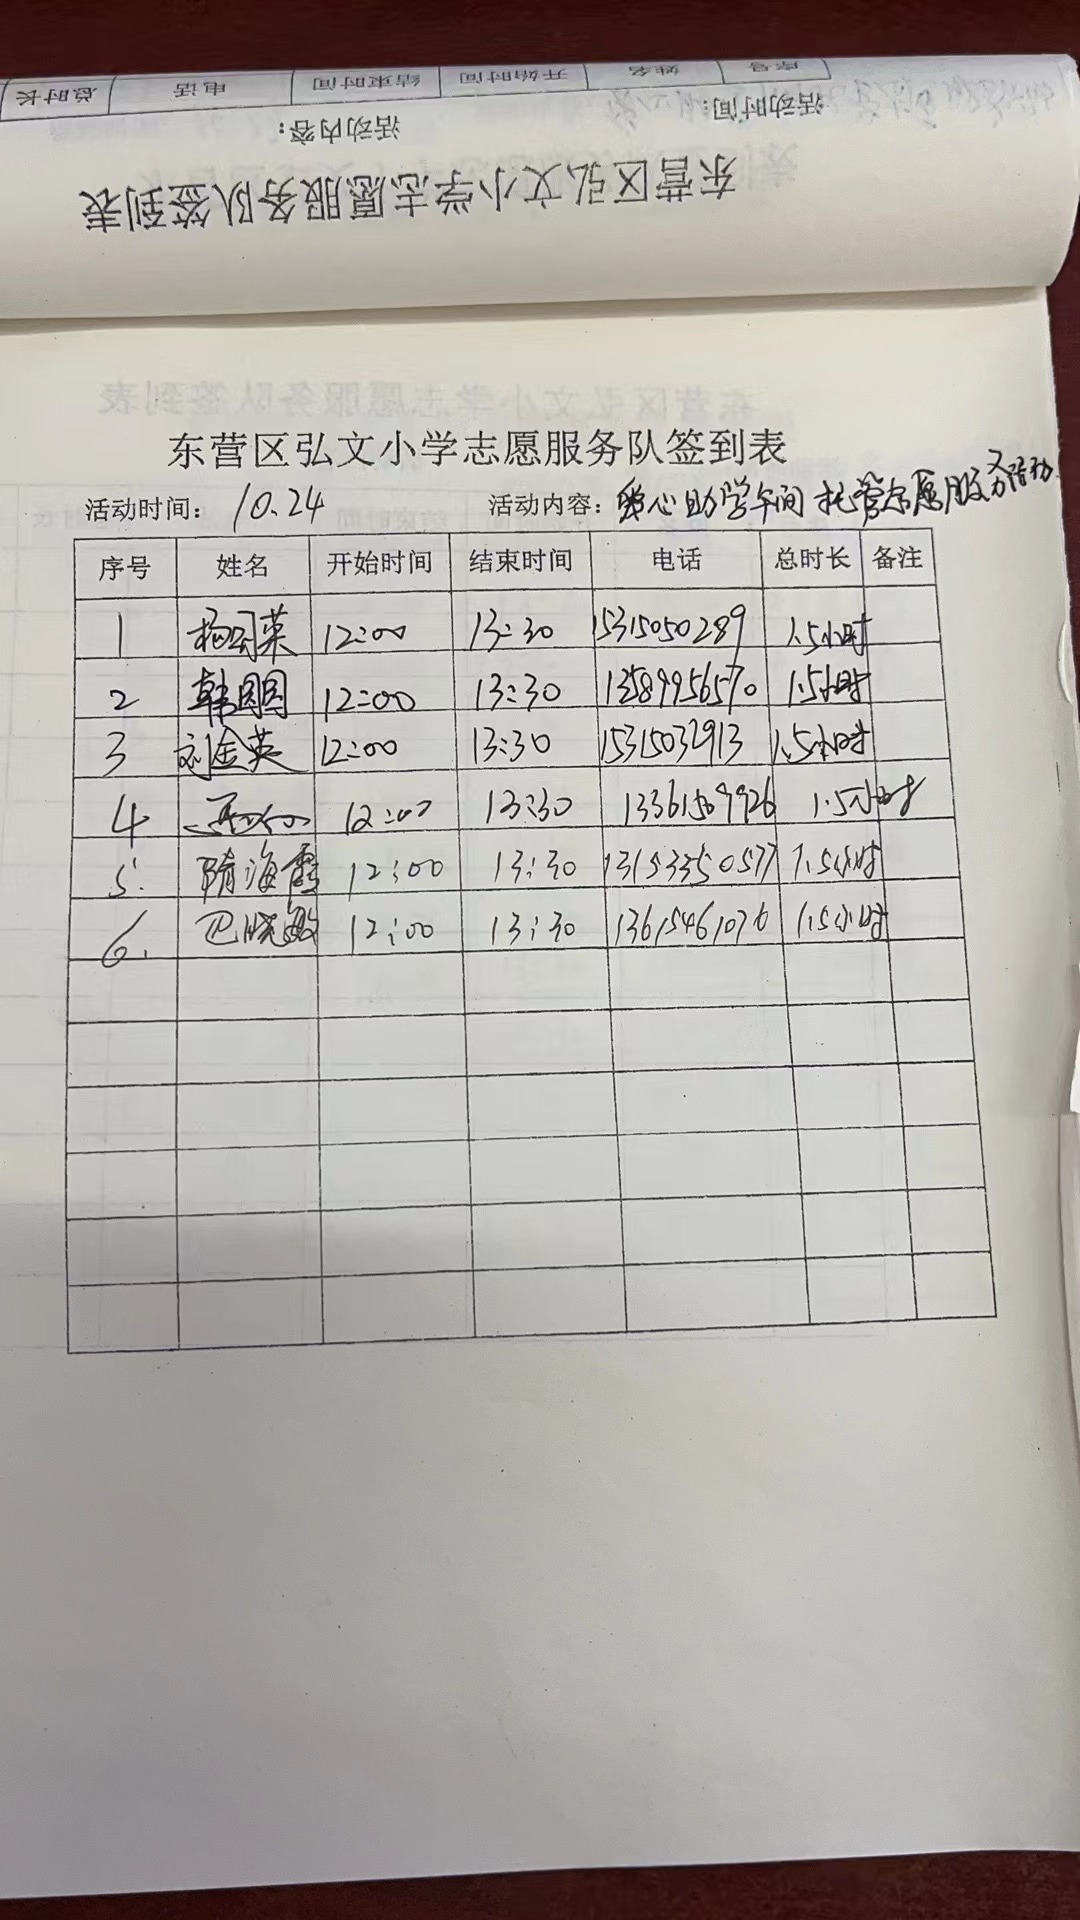 总时长 电话 结束时间 开始时间 姓名 序号
活动内容： 活动时间：
东营区弘文小学志愿服务队签到表
东营区弘文小学志愿服务队签到表
活动时间： 10.24 活动内容：爱心助学午间托管志愿服务活动
序号 姓名 开始时间 结束时间 电话 总时长 备注
1 12:00 13:30 15315050289 1.5小时
2 韩园园 12:00 13:30 13589956570 1.5小时
3 刘金英 12:00 13:30 15315032913 1.5小时
4 12:00 13:30 13361509926 1.5小时
5. 隋海霞 12:00 13:30 13153350577 1.5小时
6. 巴晓敏 12:00 13:30 13615461076 1.5小时